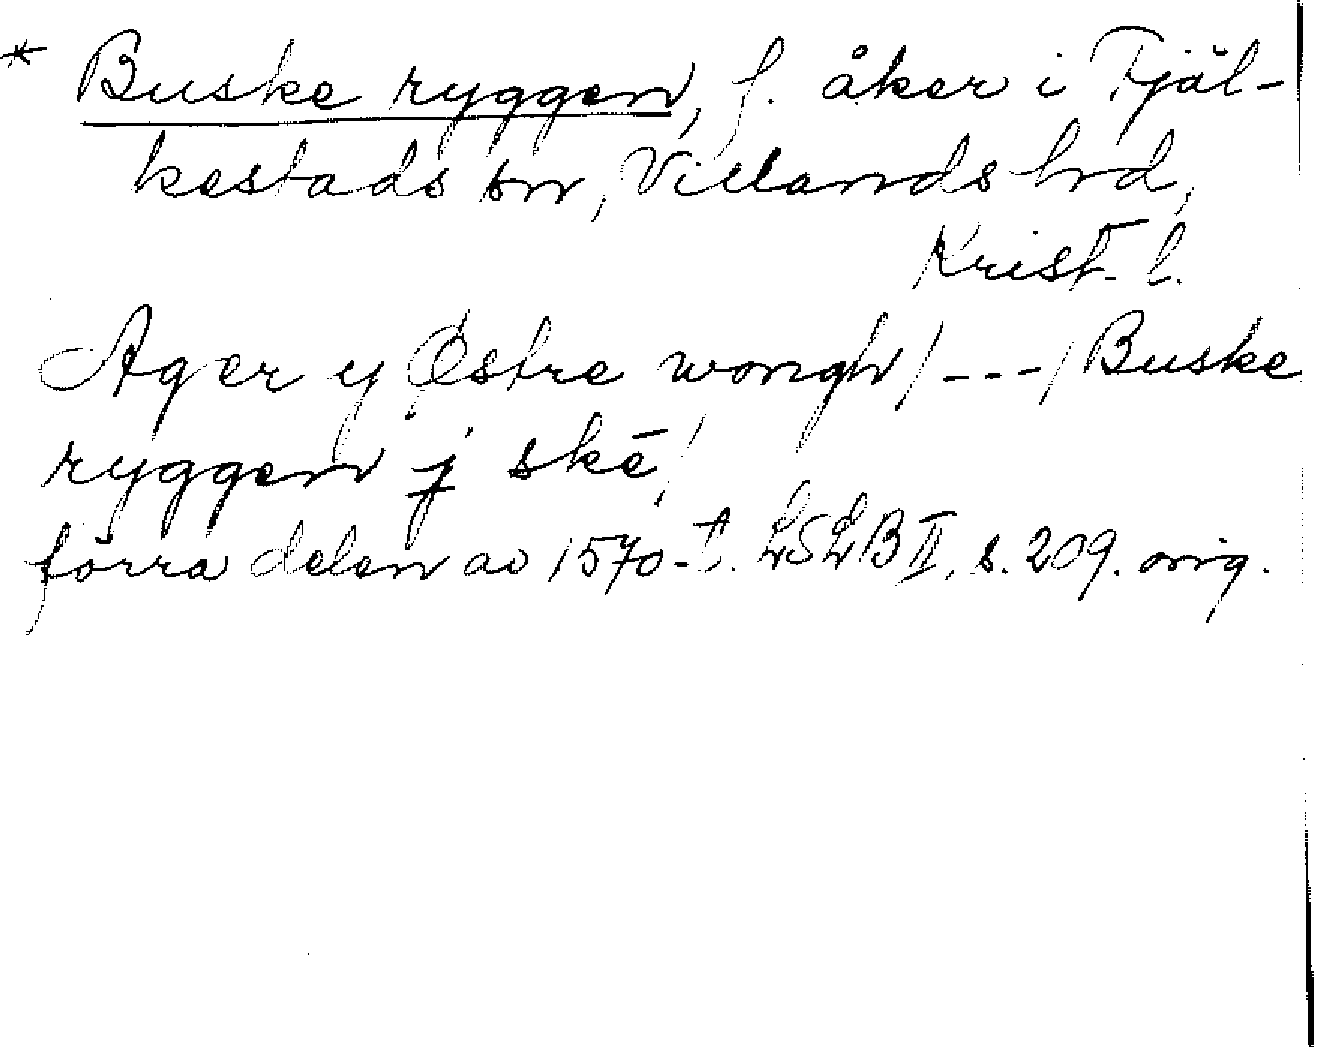 * Buske ryggen, f. åker i Fjäl-
kestads sn, Villands hrd,
Krist. l.
Ager y Østre wongh / --- / Buske
ryggen j skē /
förra delen av 1570-t. LSLB II, s. 209. orig.